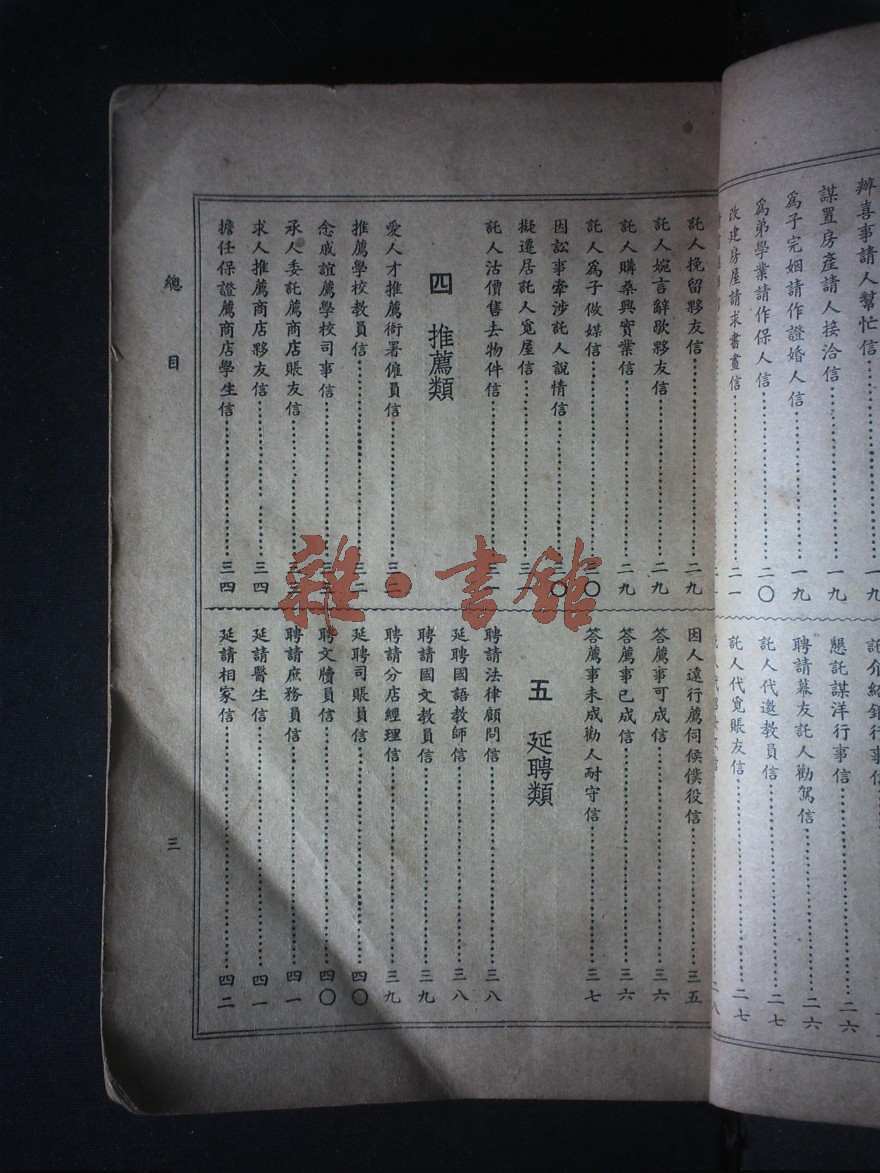 辦喜事請人幫忙信 一九
謀置房產請人接洽信 一九
爲子完姻請作證婚人信 一九
爲弟學業請作保人信 二〇
改建房屋請求書畫信 二一
懇託謀洋行事信 二六
聘請幕友託人勸駕信 二六
託人代邀教員信 二七
託人代覓賬友信 二七
託人挽留夥友信 二九
託人婉言辭歇夥友信 二九
託人購桑興實業信 二九
託人爲子做媒信
因訟事牽涉託人說情信
擬遷居託人覓屋信
託人沽價售去物件信
四 推薦類
愛人才推薦衙署僱員信
推薦學校教員信
念戚誼薦學校司事信
承人委託薦商店賬友信
求人推薦商店夥友信 三四
擔任保證薦商店學生信 三四
因人遠行薦伺候僕役信 三五
答薦事可成信 三六
答薦事已成信 三六
答薦事未成勸人耐守信 三七
五 延聘類
聘請法律顧問信 三八
延聘國語教師信 三八
聘請國文教員信 三九
聘請分店經理信 三九
延聘司賬員信 四〇
聘文牘員信 四〇
聘請庶務員信 四一
延請醫生信 四一
延請相家信 四二
總目 三
雜·書館